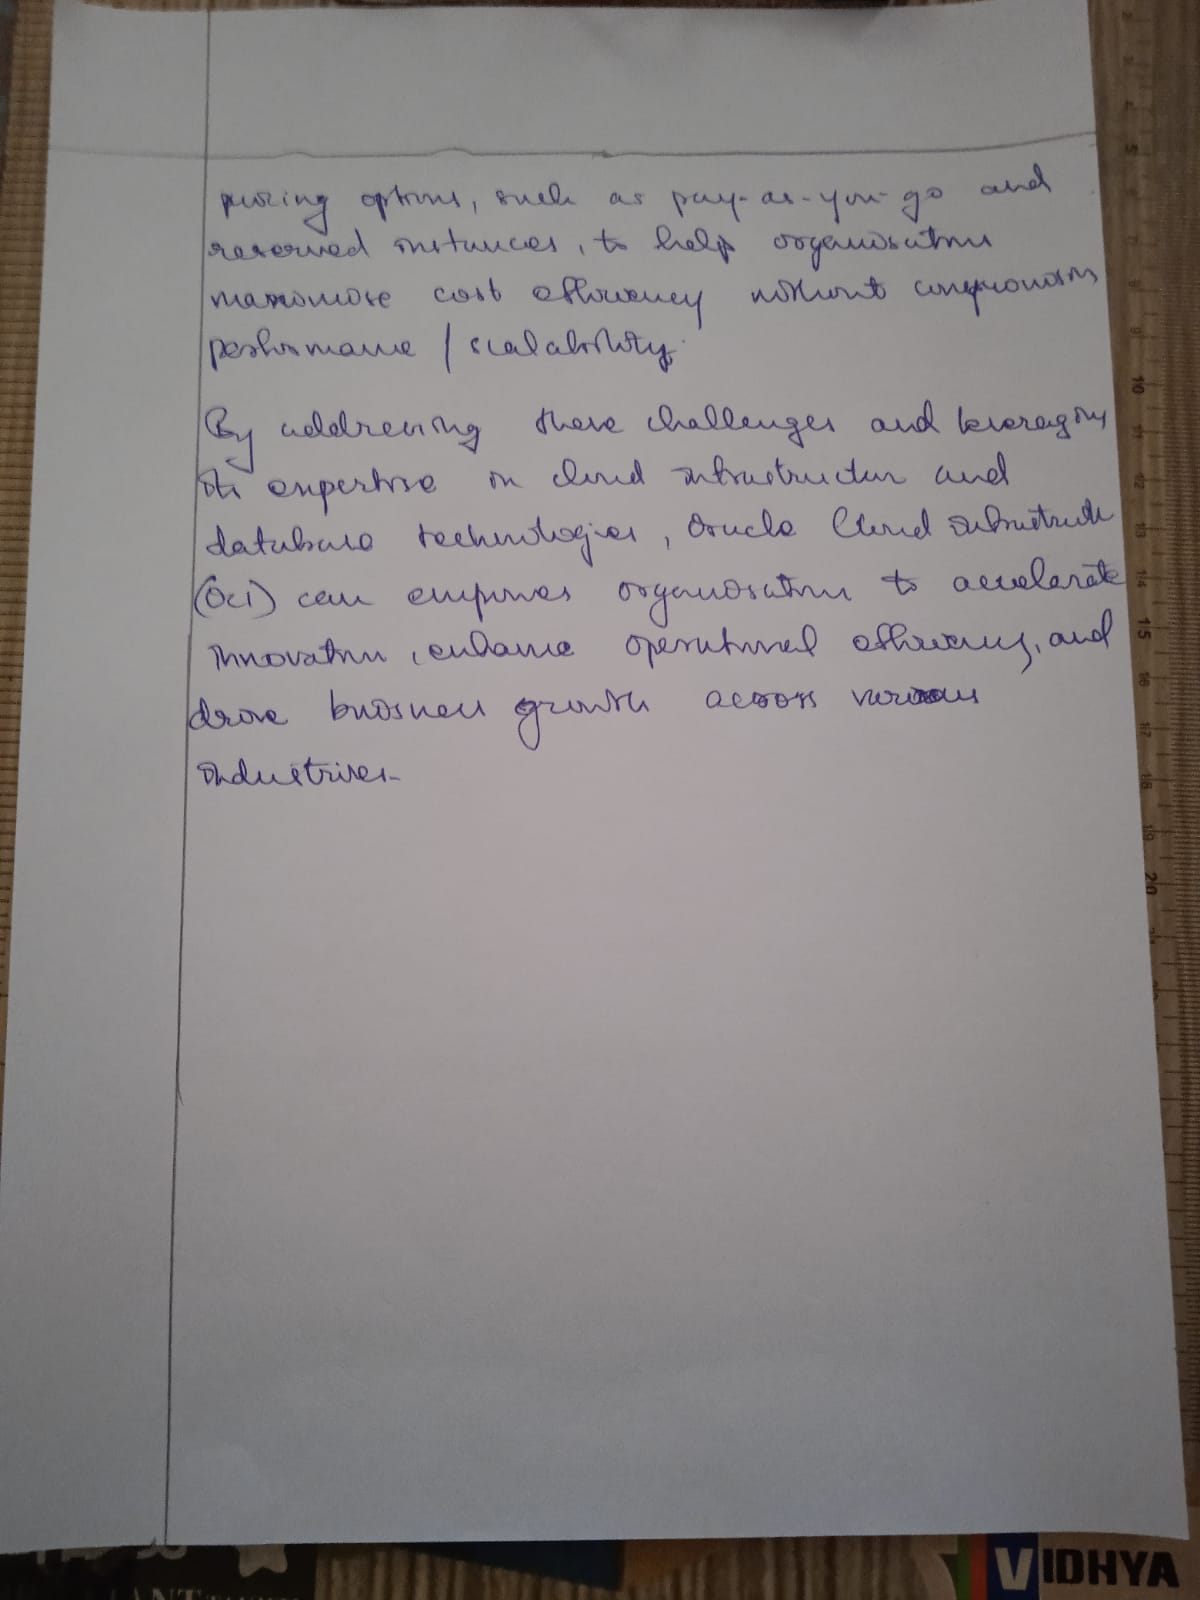 pricing options, such as pay-as-you-go and
reserved instances, to help organisations
maximise cost efficiency without compromising
performance / scalability.
By addressing these challenges and leveraging
its expertise in cloud infrastructure and
database technologies, Oracle Cloud Infrastructure
(OCI) can empower organisations to accelerate
innovation, enhance operational efficiency, and
drive business growth across various
industries.
VIDHYA